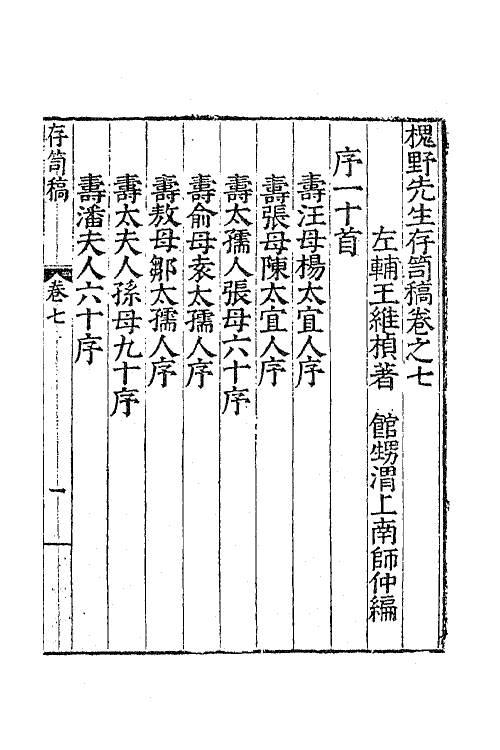 槐野先生存笥稿卷之七
左輔王維楨著　館甥渭上南師仲編
序一十首
壽汪母楊太宜人序
壽張母陳太宜人序
壽太孺人張母六十序
壽俞母袁太孺人序
壽敖母鄒太孺人序
壽太夫人孫母九十序
壽潘夫人六十序
存笥稿　卷七　一